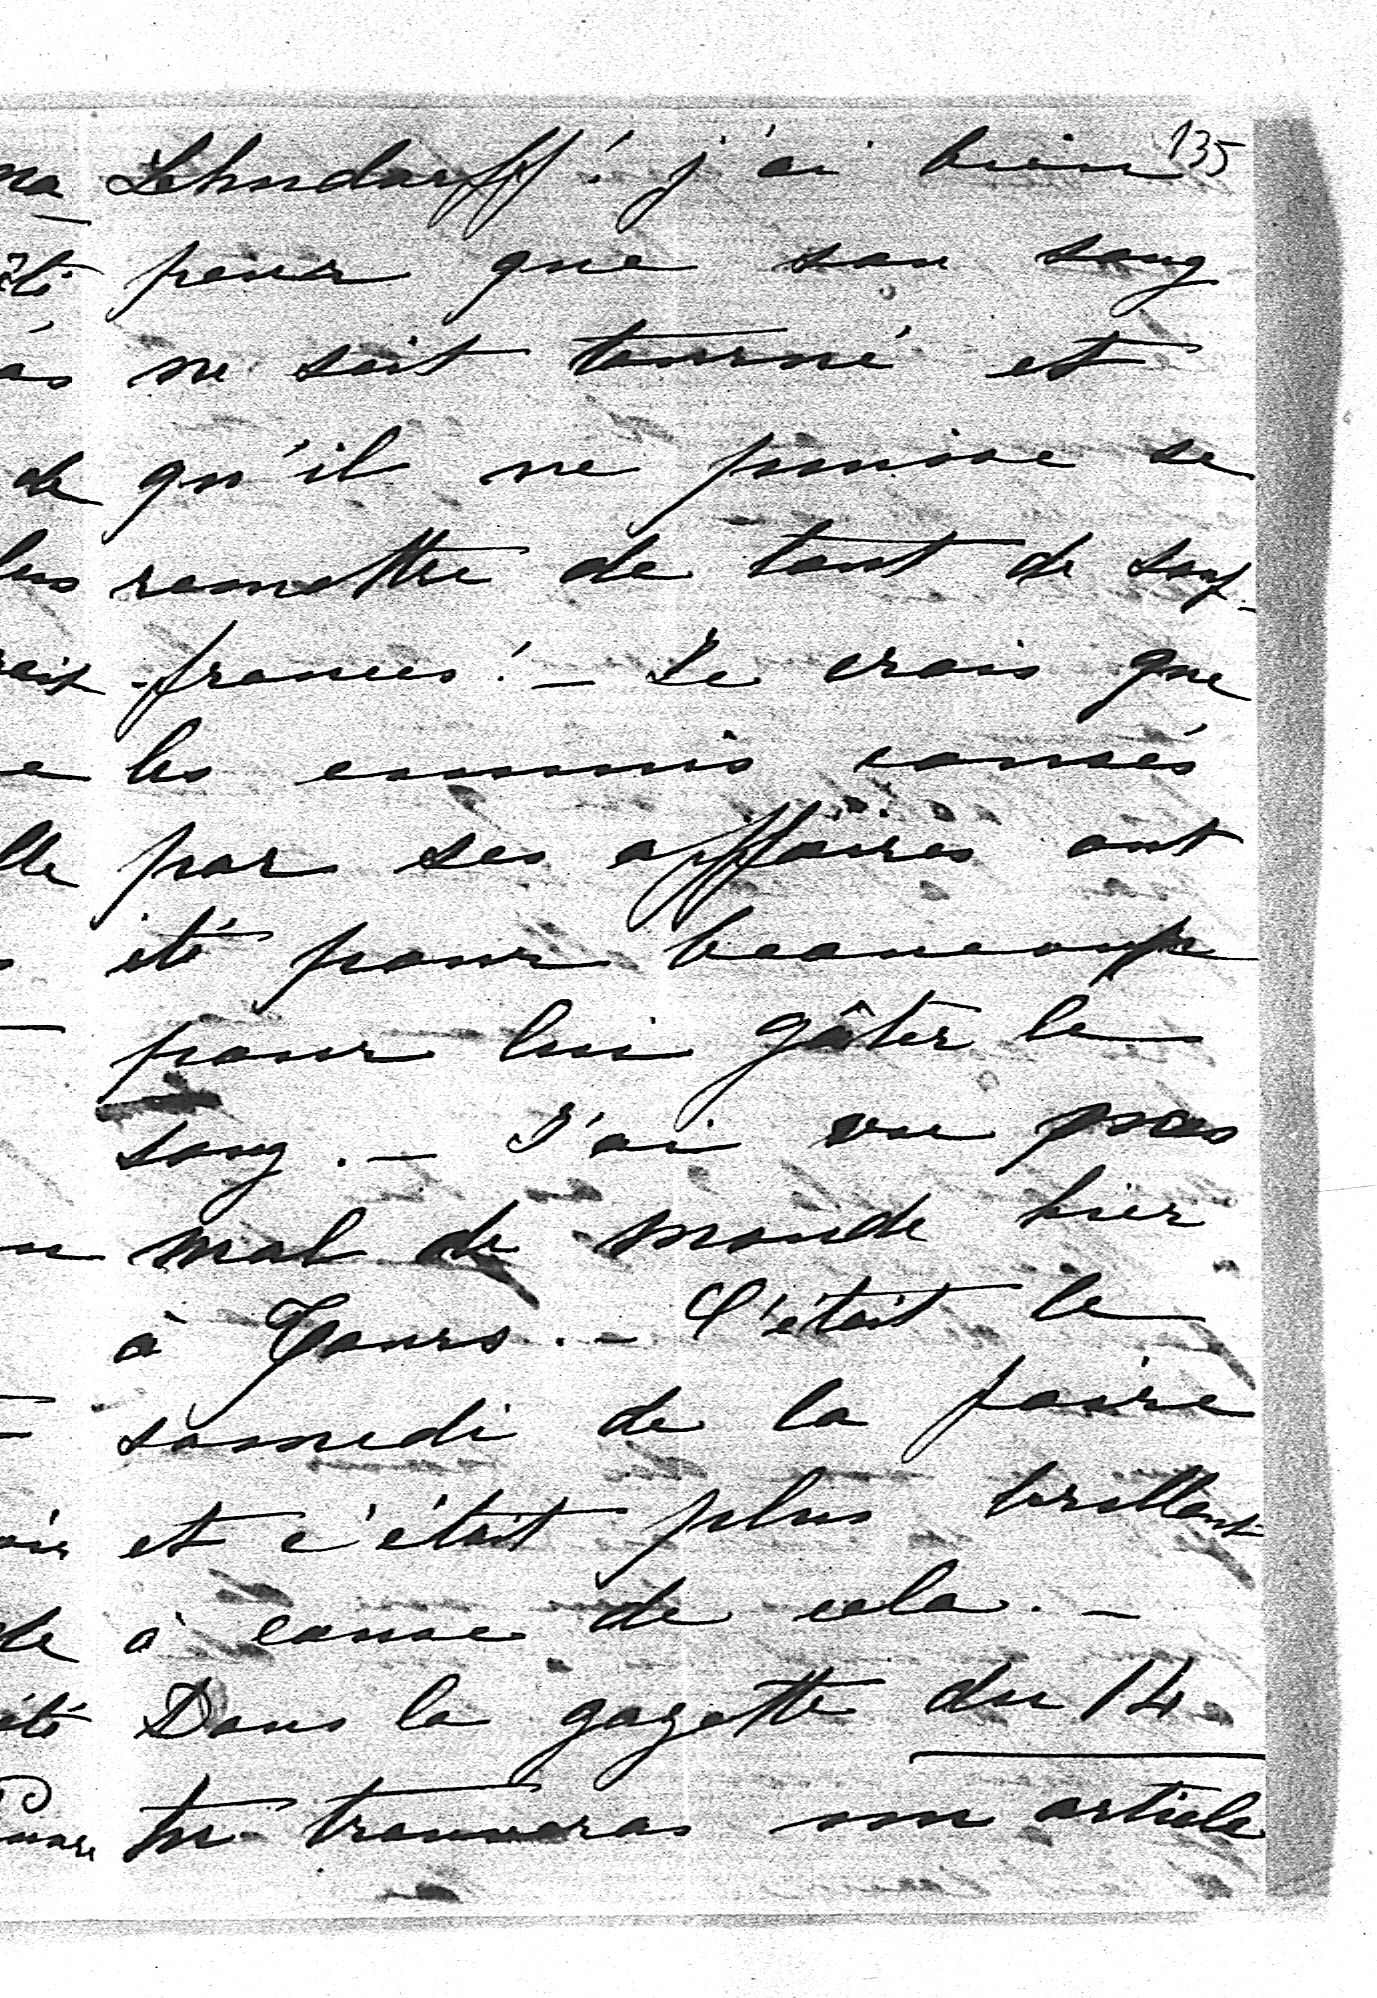 135
Lehndorff! j'ai bien
peur que son sang
ne soit tourné et
qu'il ne puisse se
remettre de tant de souf-
-frances! - Je crois que
les ennuis causés
par ses affaires ont
été pour beaucoup
pour lui gâter le
sang. - J'ai vu pas
mal de monde hier
à Tours. - C'était le
samedi de la foire
et c'était plus brillant
à cause de cela. -
Dans la gazette du 14
tu trouveras un article